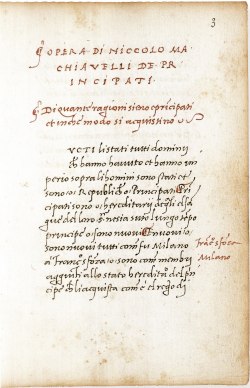 3
OPERA DI NICCOLO MA
CHIAVELLI DE PR
INCIPATI
Di quante ragioni sieno e pricipati
et inche modo si acquistino
VCTI li stati tutti dominij
ch hanno havuto et hanno im
perio sopra li homini sono stati et
sono o Republich o Principati E pri
cipati sono o hereditarij de gli el sa
gue del loro s nesia suto lungo tepo
principe o sono nuovi E nuovi o
sono nuovi tutti com fu Milano
a Franc sforza o sono com membrj
aggiuti allo stato hereditario del prin
cipe ch li acquista com è el regno dj
Franc sforza
Milano